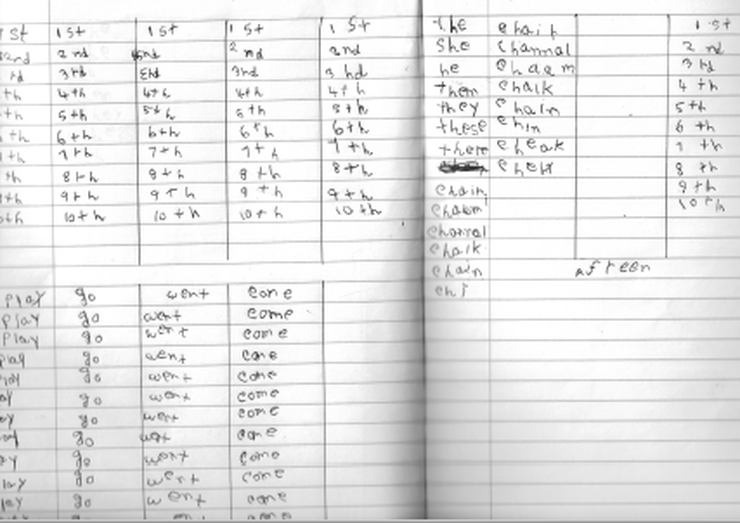 1st 1st 1st 1st 1st
2nd 2nd 2nd 2nd 2nd
rd 3rd 3rd 3rd 3rd
th 4th 4th 4th 4th
th 5th 5th 5th 5th
th 6th 6th 6th 6th
th 7th 7th 7th 7th
th 8th 8th 8th 8th
th 9th 9th 9th 9th
oth 10th 10th 10th 10th
play go went come
play go went come
play go went come
play go went come
play go went come
ay go went come
ay go went come
ay go went come
ay go went come
lay go went come
lay go went come
the chair 1st
she channal 2nd
he chaam 3rd
them chalk 4th
they chain 5th
these chin 6th
there cheak 7th
8th
chain 9th
10th
chalk
chain afreen
chi